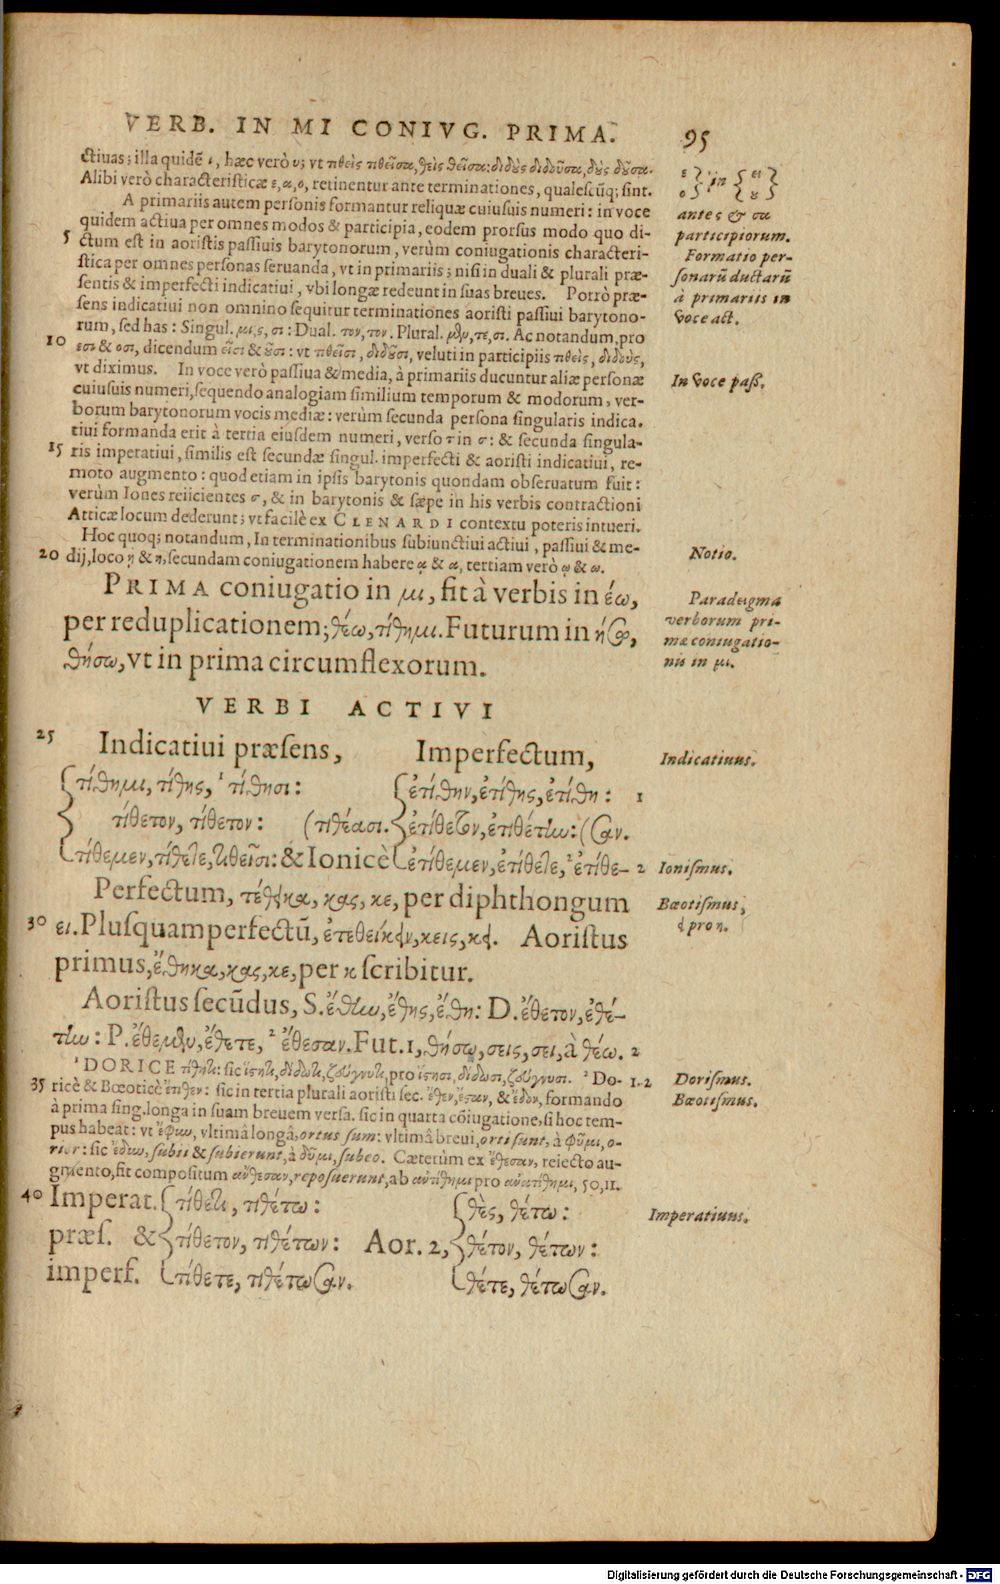 VERB. IN MI CONIVG. PRIMA. 95
ctiuas; illa quidẽ ι, hæc verò υ; vt πθεὶς πθεῖσα, θεὶς θεῖσα: διδοὺς διδοῦσα, δοὺς δοῦσα.
Alibi verò characteristicæ ε, α, ο, retinentur ante terminationes, qualescũq; sint.
A primariis autem personis formantur reliquæ cuiusuis numeri: in voce
quidem actiua per omnes modos & participia, eodem prorsus modo quo di-
5 ctum est in aoristis passiuis barytonorum, verùm coniugationis characteri-
stica per omnes personas seruanda, vt in primariis; nisi in duali & plurali præ-
sentis & imperfecti indicatiui, vbi longæ redeunt in suas breues. Porrò præ-
sens indicatiui non omnino sequitur terminationes aoristi passiui barytono-
rum, sed has: Singul. μι, ς, σι: Dual. τον, τον. Plural. μεν, τε, σι. Ac notandum, pro
10 εσι & οσι, dicendum εῖσι & οῦσι: vt πθεῖσι, διδοῦσι, veluti in participiis πθεὶς, διδοὺς,
vt diximus. In voce verò passiua & media, à primariis ducuntur aliæ personæ
cuiusuis numeri, sequendo analogiam similium temporum & modorum, ver-
borum barytonorum vocis mediæ: verùm secunda persona singularis indica-
tiui formanda erit à tertia eiusdem numeri, verso τ in σ: & secunda singula-
15 ris imperatiui, similis est secundæ singul. imperfecti & aoristi indicatiui, re-
moto augmento: quod etiam in ipsis barytonis quondam obseruatum fuit:
verùm Iones reiicientes σ, & in barytonis & sæpe in his verbis contractioni
Atticæ locum dederunt; vt facilè ex CLENARDI contextu poteris intueri.
Hoc quoq; notandum, In terminationibus subiunctiui actiui, passiui & me-
20 dij, loco ῃ & η, secundam coniugationem habere ᾳ & α, tertiam verò ῳ & ω.
PRIMA coniugatio in μι, fit à verbis in έω,
per reduplicationem; θέω, τίθημι. Futurum in ήσω,
θήσω, vt in prima circumflexorum.
VERBI ACTIVI
25 Indicatiui præsens, Imperfectum,
τίθημι, τίθης, ¹ τίθησι: ἐτίθην, ἐτίθης, ἐτίθη: 1
τίθετον, τίθετον: (τιθέασι. ἐτίθετον, ἐτιθέτην: (σαν.
τίθεμεν, τίθετε, τιθεῖσι: & Ionicè ἐτίθεμεν, ἐτίθετε, ² ἐτίθε- 2
Perfectum, τέθεικα, κας, κε, per diphthongum
30 ει. Plusquamperfectũ, ἐτεθείκειν, κεις, κει. Aoristus
primus, ἔθηκα, κας, κε, per κ scribitur.
Aoristus secũdus, S. ἔθην, ἔθης, ἔθη: D. ἔθετον, ἐθέ-
την: P. ἔθεμεν, ἔθετε, ² ἔθεσαν. Fut. 1, θήσω, σεις, σει, à θέω. 2
¹ DORICE τίθητι: sic ἵστητι, δίδωτι, ζεύγνυτι, pro ἵστησι, δίδωσι, ζεύγνυσι. ² Do- 1.2
35 ricè & Bœoticè ἔτιθεν: sic in tertia plurali aoristi sec. ἔθεν, ἔσταν, & ἔδον, formando
à prima sing. longa in suam breuem versa. sic in quarta cõiugatione, si hoc tem-
pus habeat: vt ἔφυν, vltimâ longâ, ortus sum: vltimâ breui, orti sunt, à φῦμι, o-
rior: sic ἔδυν, subii & subierunt, à δῦμι, subeo. Cæterùm ex ἔθεσαν, reiecto au-
gmento, fit compositum ἄνθεσαν, reposuerunt, ab ἀντίθημι pro ἀνατίθημι, 50, 11.
40 Imperat. τίθετι, τιθέτω: θὲς, θέτω:
præs. & τίθετον, τιθέτων: Aor. 2, θέτον, θέτων:
imperf. τίθετε, τιθέτωσαν. θέτε, θέτωσαν.
ε ο in ει ȣ
ante ς & σα
participiorum.
Formatio per-
sonarũ ductarũ
à primariis in
voce act.
In voce pass.
Notio.
Paradeigma
verborum pri-
mæ coniugatio-
nis in μι.
Indicatiuus.
Ionismus.
Bœotismus,
ει pro η.
Dorismus.
Bœotismus.
Imperatiuus.
Digitalisierung gefördert durch die Deutsche Forschungsgemeinschaft - DFG